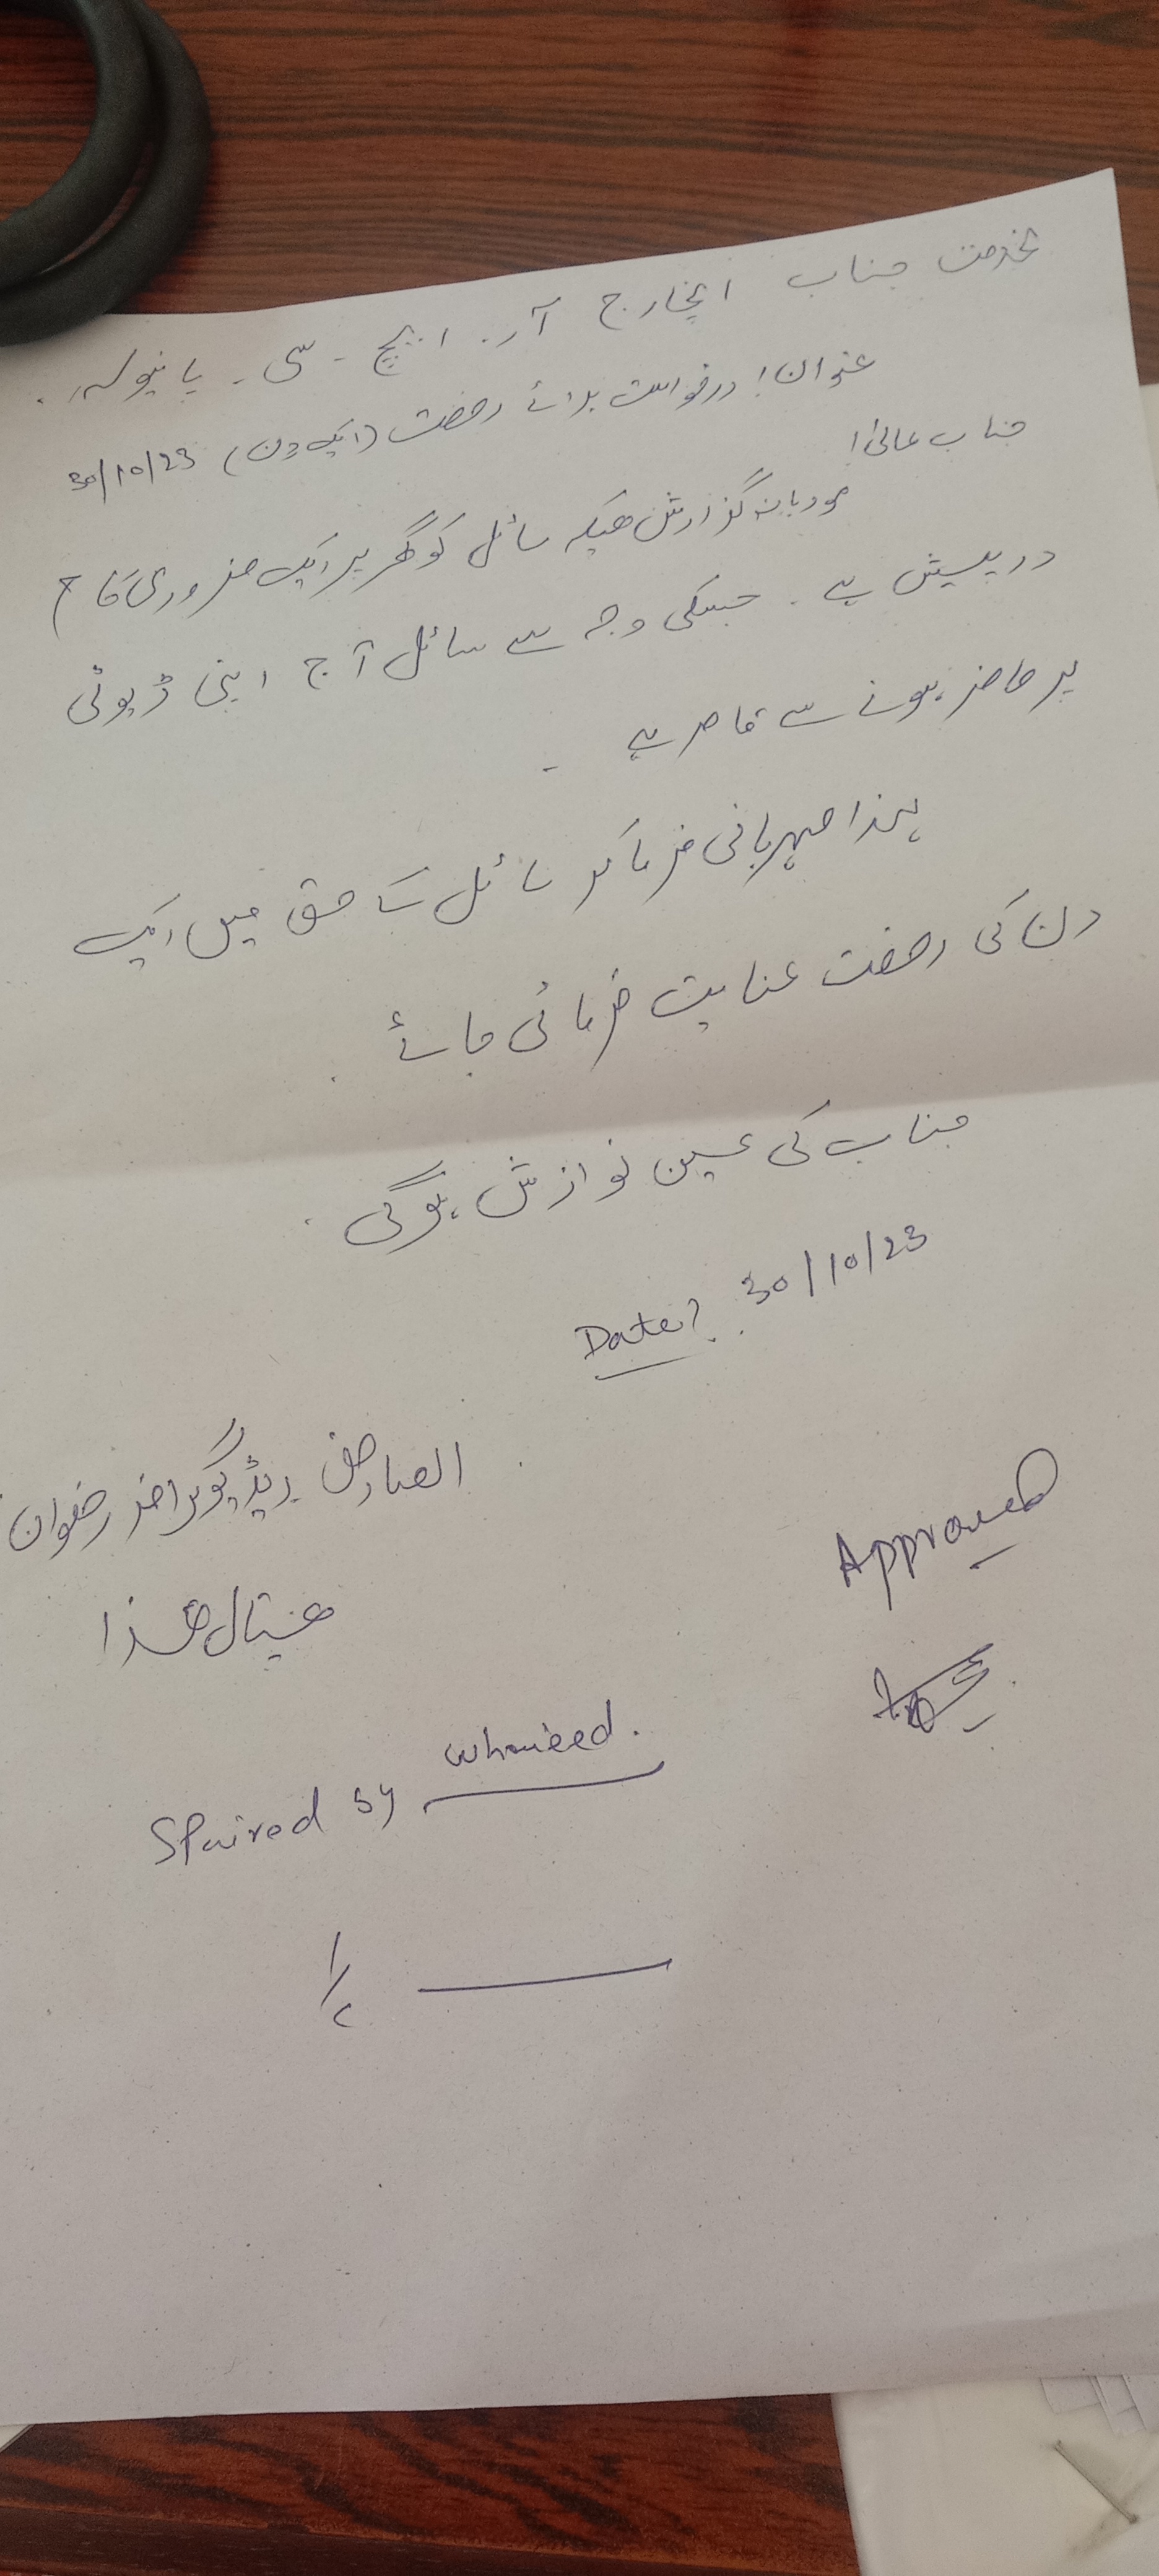 بخدمت جناب انچارج آر۔ ایچ۔ سی۔ پانیولہ۔
عنوان! درخواست برائے رخصت (ایک دن) 30/10/23
جناب عالی!
مودبانہ گزارش ھیکہ سائل کو گھر پر ایک ضروری کام
درپیش ہے۔ جسکی وجہ سے سائل آج اپنی ڈیوٹی
پر حاضر ہونے سے قاصر ہے۔
لہذا مہربانی فرما کر سائل کے حق میں ایک
دن کی رخصت عنایت فرمائی جائے۔
جناب کی عین نوازش ہوگی۔
Date: 30/10/23
العارض ریڈیوگرافر رضوان
ھسپتال ھذا
Approved
Spaired by Waheed.